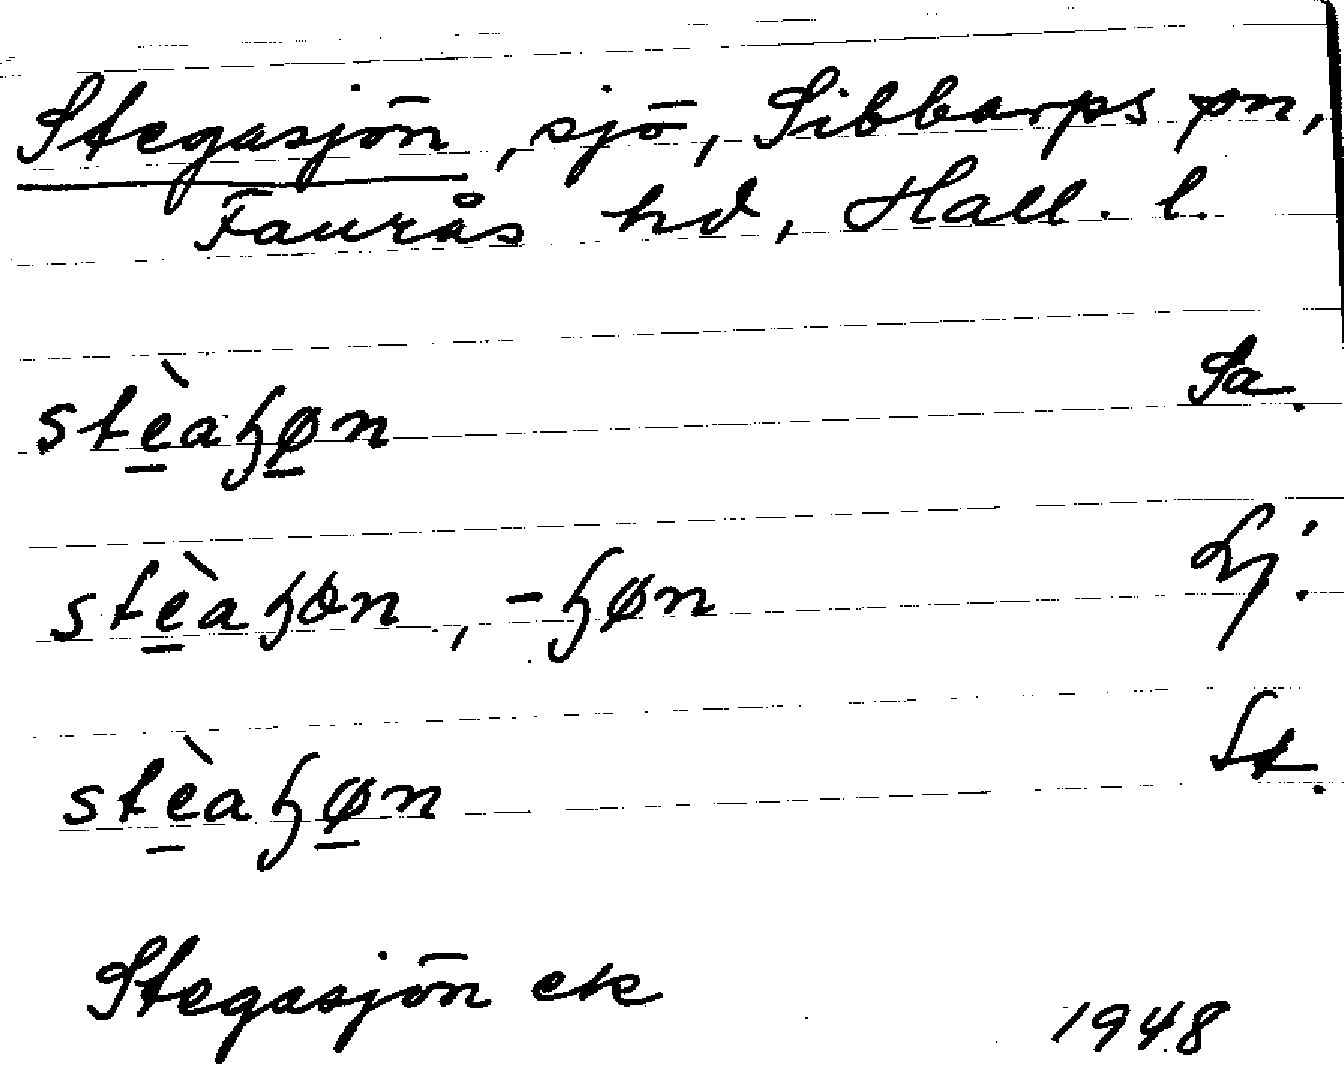 Stegasjön, sjö, Sibbarps sn,
Faurås hd, Hall. l.
stè̱aɧø̱n Sa.
stè̱aɧɵn, -ɧøn Lj.
stè̱aɧø̱n St.
Stegasjön ek
1948